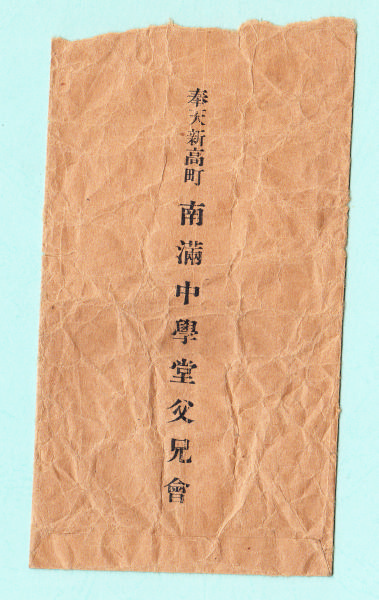 奉天新高町 南滿中學堂父兄會